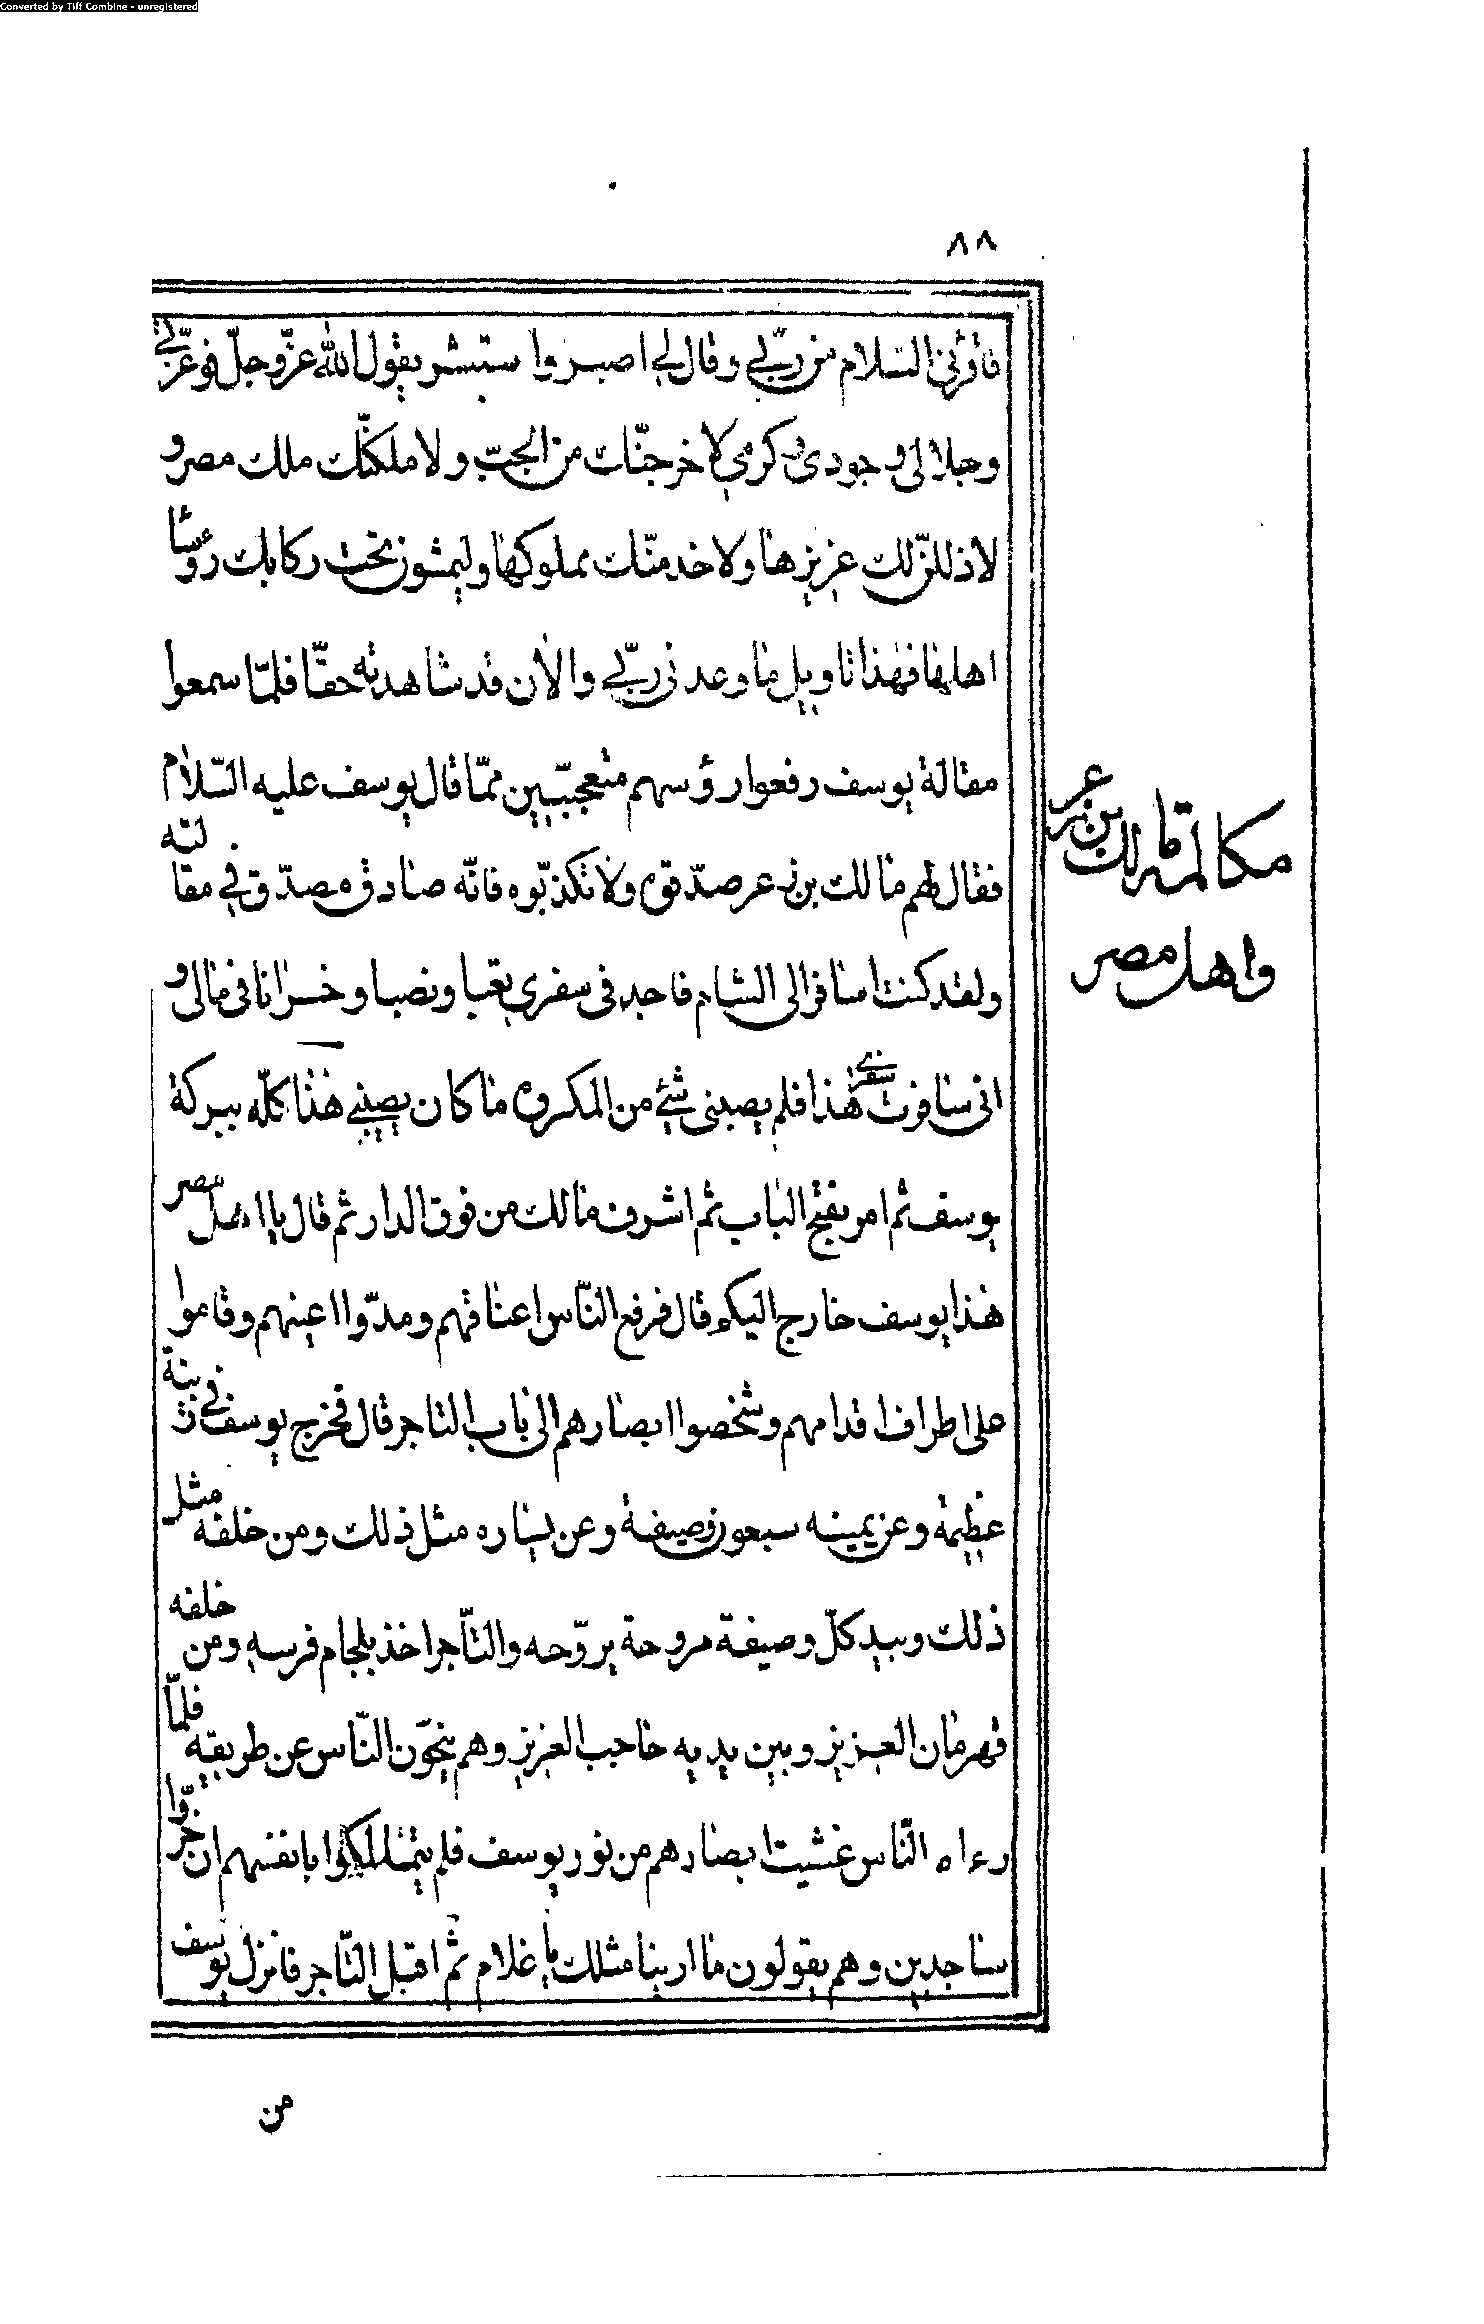 Converted by Tiff Combine - unregistered
٨٨
فاقرئنى السّلام من ربّى وقال لى اصبر واستبشر يقول الله عزّ وجلّ فوعزّتى
وجلالى وجودى وكرمى لاخرجنّك من الجبّ ولاملكنّك ملك مصر و
لاذللنّ لك عزيزها ولاخدمنّك مملوكها وليمشون تحت ركابك رؤسا
اهاليها فهذا تاويل ما وعدنى ربّى والان قد شاهدته حقّا فلمّا سمعوا
مقالة يوسف رفعوا رؤسهم متعجّبين ممّا قال يوسف عليه السّلام
فقال لهم مالك بن زعر صدّقوه ولا تكذّبوه فانّه صادق مصدّق فى مقالته
ولقد كنت اسافر الى الشام فاجد فى سفرى تعبا ونصبا وخسرانا فى مالى و
انى سافرت سفرى هذا فلم يصبنى شئ من المكروه ما كان يصبنى هذا كلّه ببركة
يوسف ثم امر بفتح الباب ثم اشرف مالك من فوق الدار ثم قال يا اهل مصر
هذا يوسف خارج اليكم قال فرفع النّاس اعناقهم ومدّوا اعينهم وقاموا
على اطراف اقدامهم وشخصوا ابصارهم الى باب التاجر قال فخرج يوسف فى زينة
عظيمة وعن يمينه سبعون وصيفة وعن يساره مثل ذلك ومن خلفه مثل
ذلك وبيد كلّ وصيفة مروحة يروّحه والتّاجر اخذ بلجام فرسه ومن خلفه
قهرمان العزيز وبين يديه حاجب العزيز وهم ينحّون النّاس عن طريقه فلمّا
رءاه النّاس غشيت ابصارهم من نور يوسف فلم يتمالكوا بانفسهم ان خرّوا
ساجدين وهم يقولون ما ارينا مثلك يا غلام ثم اقبل التّاجر فانزل يوسف
من
مكالمة مالك بن زعر
واهل مصر